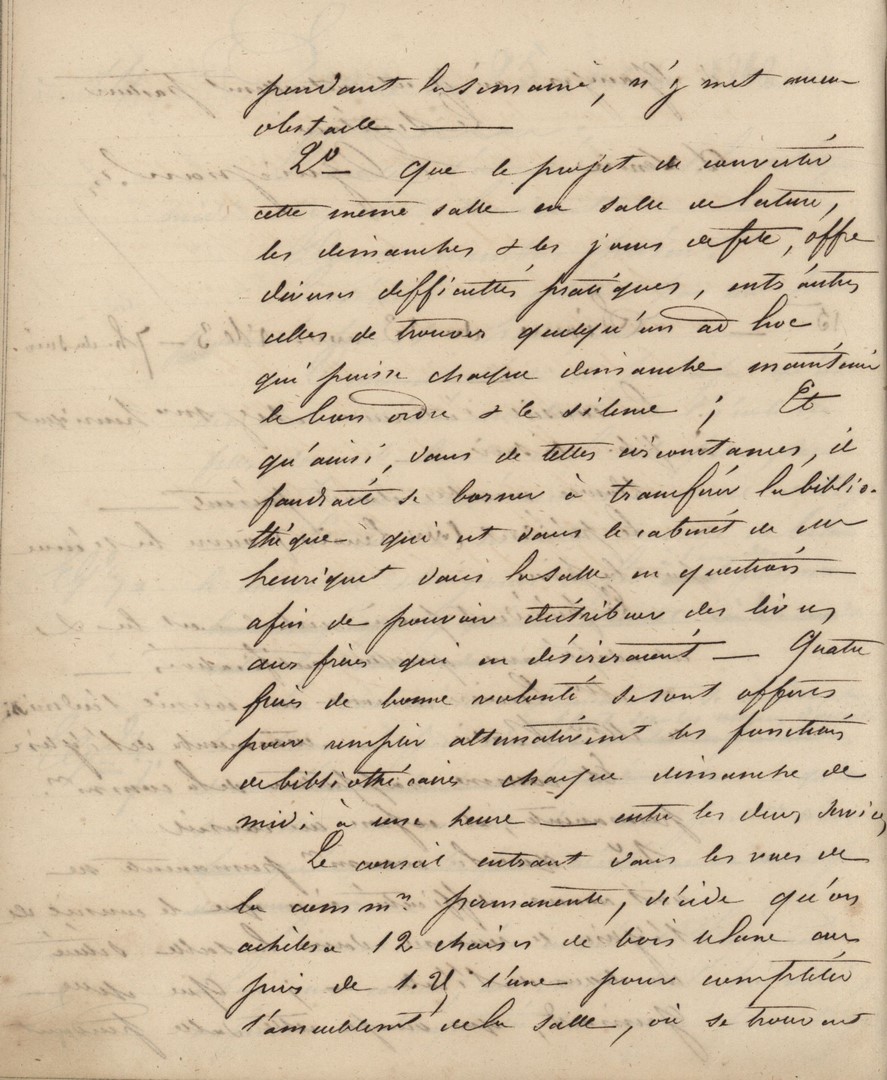 pendant la semaine, n'y met aucun
obstacle —
2º — que le projet de convertir
cette même salle en salle de lecture,
les dimanches & les jours de fête, offre
diverses difficultés pratiques, entr'autres
celles de trouver quelqu'un ad hoc
qui puisse chaque dimanche maintenir
le bon ordre & le silence ; Et
qu'ainsi, dans de telles circonstances, il
faudrait se borner à transférer la biblio-
thèque qui est dans le cabinet de Mr
henriquet dans la salle en question —
afin de pouvoir distribuer des livres
aux frères qui en désireraient — Quatre
frères de bonne volonté se sont offerts
pour remplir alternativement les fonctions
de bibliothécaires chaque dimanche de
midi à une heure — entre les deux services
Le conseil entrant dans les vues de
la commn permanente, décide qu'on
achètera 12 chaises de bois blanc au
prix de l'une pour compléter
l'ameublement de la salle, où se trouvent